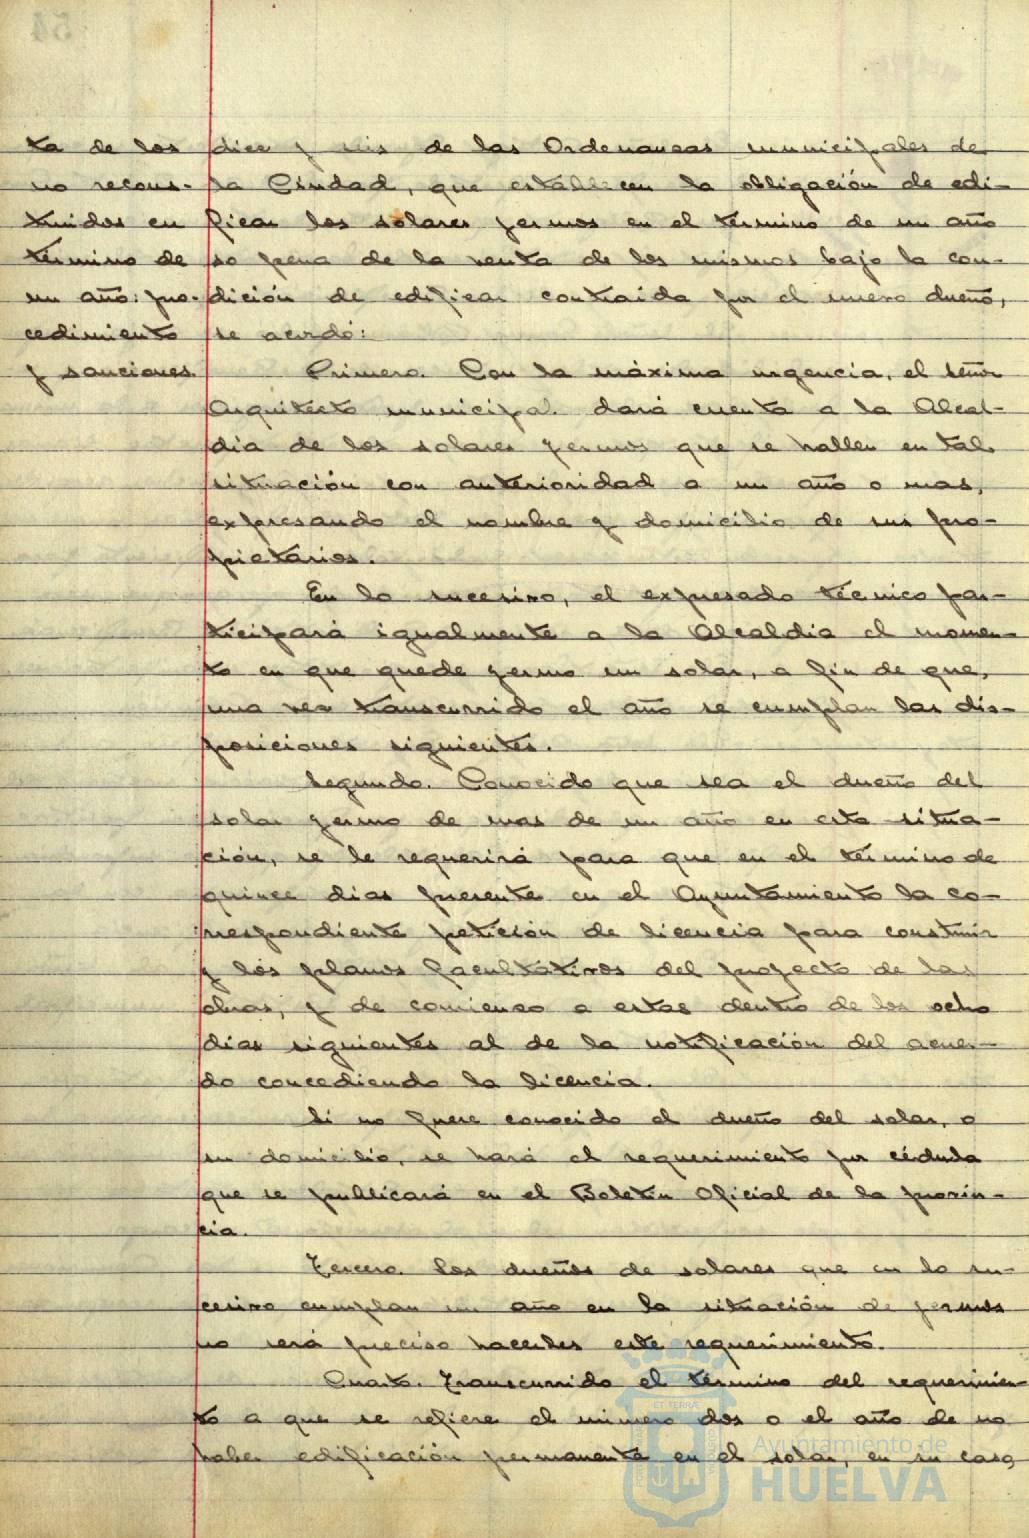 ta de los
no recons-
truidos en
término de
un año: pro-
cedimiento
y sanciones.
diez y seis de las Ordenanzas municipales de
la Ciudad, que establecen la obligación de edi-
ficar los solares yermos en el término de un año
so pena de la venta de los mismos bajo la con-
dición de edificar contraida por el nuevo dueño,
se acordó:
Primero. Con la máxima urgencia, el señor
Arquitecto municipal dará cuenta a la Alcal-
día de los solares yermos que se hallen en tal
situación con anterioridad a un año o mas,
expresando el nombre y domicilio de sus pro-
pietarios.
En lo sucesivo, el expresado técnico par-
ticipará igualmente a la Alcaldia el momen-
to en que quede yermo un solar, a fin de que,
una vez transcurrido el año se cumplan las dis-
posiciones siguientes.
Segundo. Conocido que sea el dueño del
solar yermo de mas de un año en esta situa-
ción, se le requerirá para que en el término de
quince dias presente en el Ayuntamiento la co-
rrespondiente petición de licencia para construir
y los planos facultativos del proyecto de las
obras, y de comienzo a estas dentro de los ocho
dias siguientes al de la notificación del acuer-
do concediendo la licencia.
Si no fuere conocido el dueño del solar, o
su domicilio, se hará el requerimiento por cédula
que se publicará en el Boletin Oficial de la provin-
cia.
Tercero. Los dueños de solares que en lo su-
cesivo cumplan un año en la situación de yermos
no será preciso hacerles este requerimiento.
Cuarto. Transcurrido el término del requerimien-
to a que se refiere el número dos o el año de no
haber edificación permanente en el solar, en su caso,
Ayuntamiento de
HUELVA